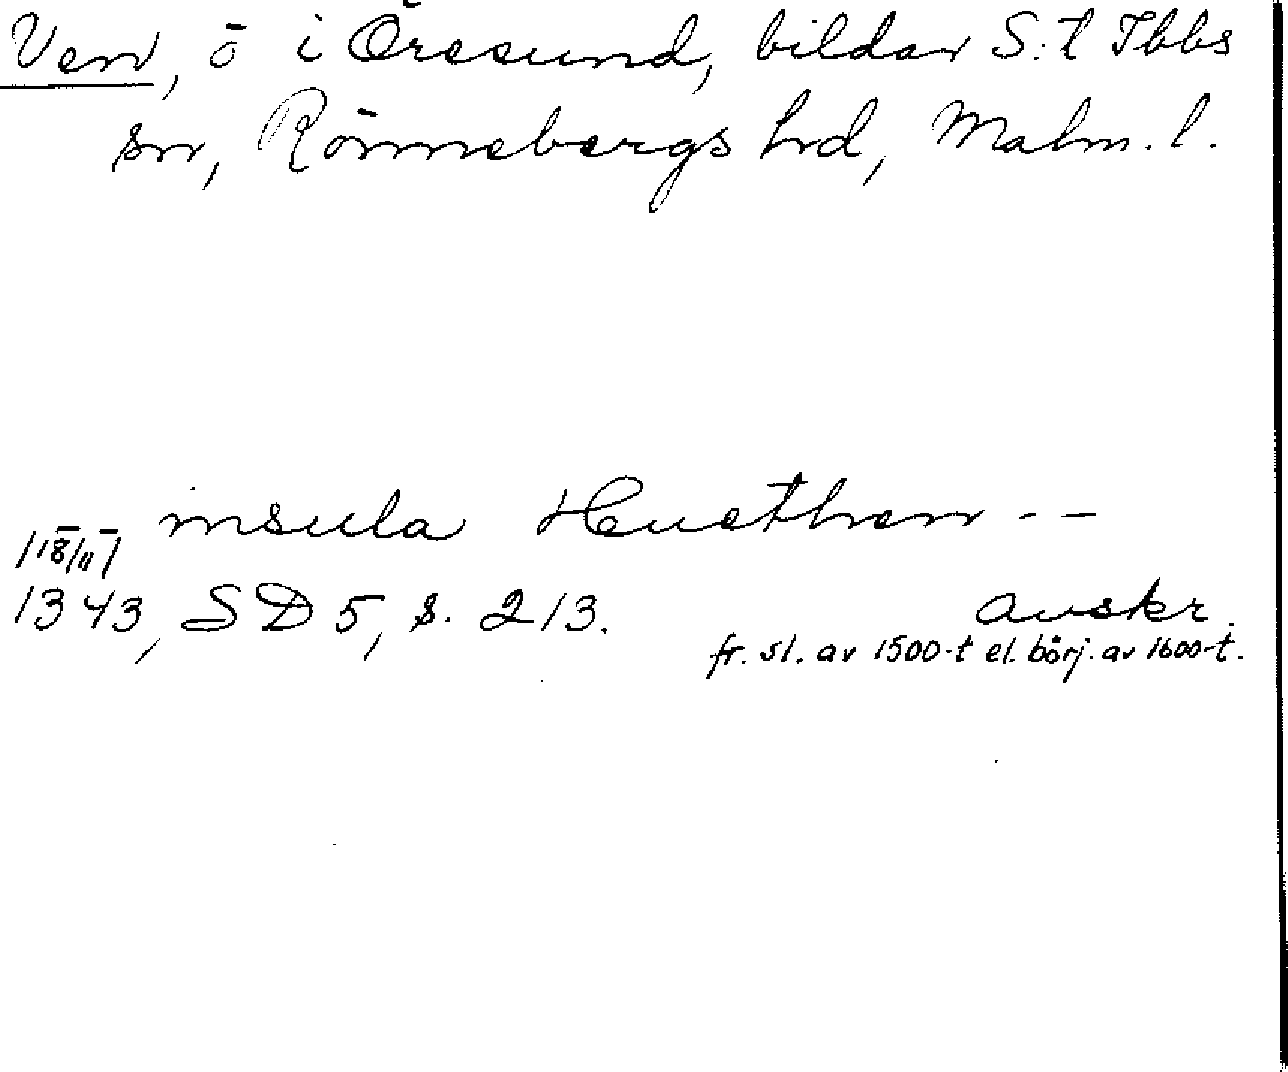 Ven, ö i Öresund, bildar S:t Ibbs
sn, Rönnebergs hd, Malm. l.
insula Huethen - -
/18/11/
1343, SD 5, s. 213. avskr.
fr. sl. av 1500-t el. börj. av 1600-t.